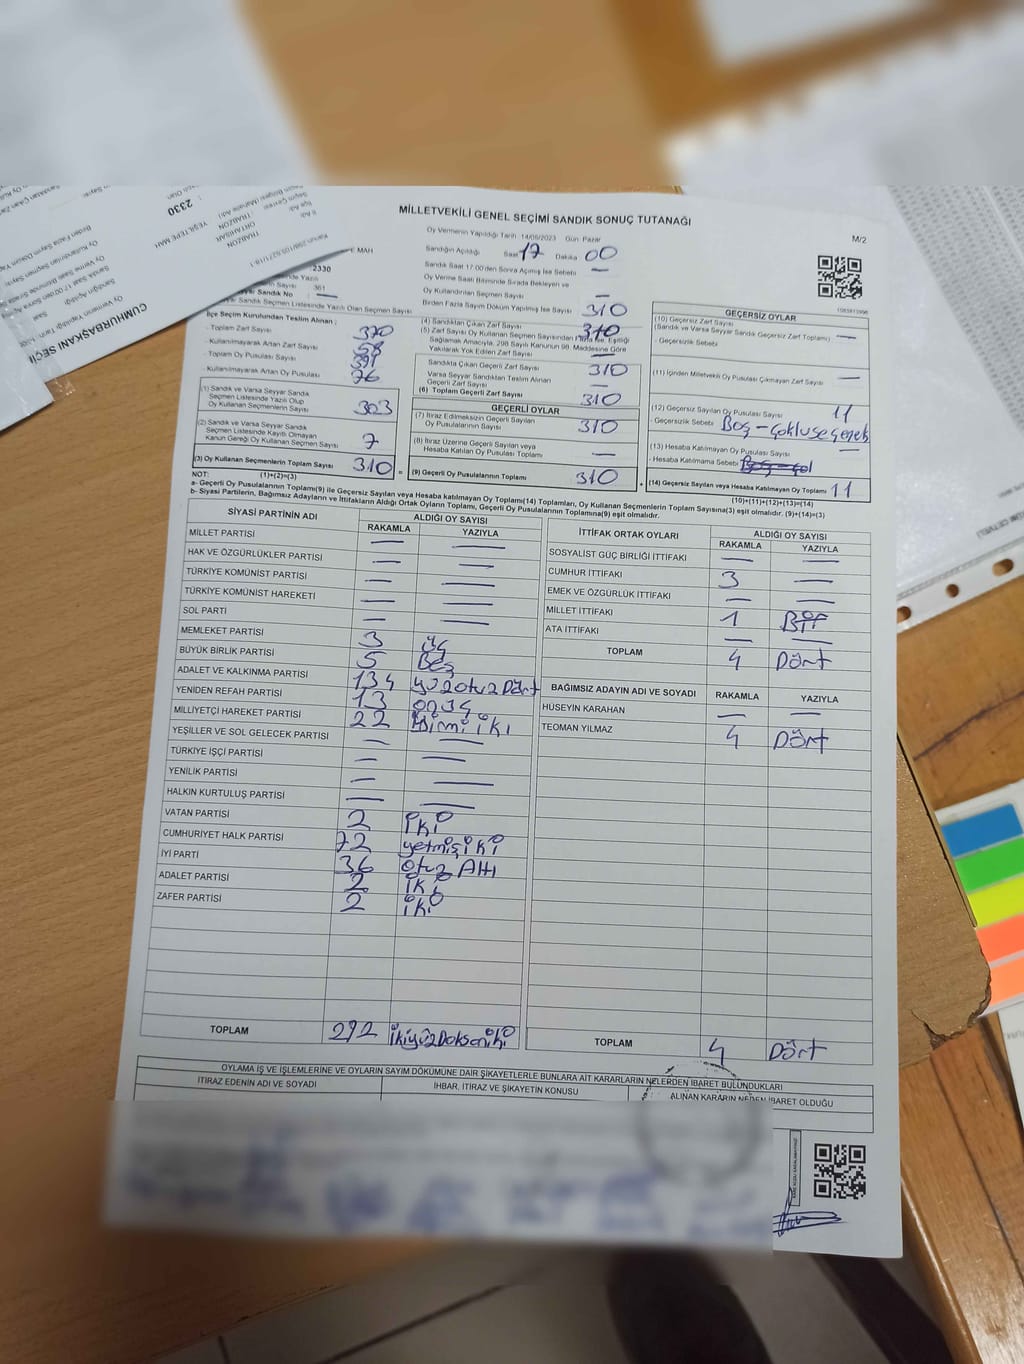 MİLLETVEKİLİ GENEL SEÇİMİ SANDIK SONUÇ TUTANAĞI
M/2
Oy Vermenin Yapıldığı Tarih 14/05/2023 Gün Pazar
Sandığın Açıldığı Saat 17 Dakika 00
Sandık Saat 17:00'den Sonra Açılmış İse Sebebi —
Oy Verme Saati Bitiminde Sırada Bekleyen ve
Oy Kullandırılan Seçmen Sayısı —
Birden Fazla Sayım Döküm Yapılmış İse Sayısı 310
E MAH
2330
361
Sandık No —
Sandık Seçmen Listesinde Yazılı Olan Seçmen Sayısı
İlçe Seçim Kurulundan Teslim Alınan ;
- Toplam Zarf Sayısı 370
- Kullanılmayarak Artan Zarf Sayısı
- Toplam Oy Pusulası Sayısı
- Kullanılmayarak Artan Oy Pusulası 76
(1) Sandık ve Varsa Seyyar Sandık
Seçmen Listesinde Yazılı Olup
Oy Kullanan Seçmenlerin Sayısı 303
(2) Sandık ve Varsa Seyyar Sandık
Seçmen Listesinde Kayıtlı Olmayan
Kanun Gereği Oy Kullanan Seçmen Sayısı 7
(3) Oy Kullanan Seçmenlerin Toplam Sayısı 310 =
(4) Sandıktan Çıkan Zarf Sayısı 310
(5) Zarf Sayısı Oy Kullanan Seçmen Sayısından Fazla İse, Eşitliği
Sağlamak Amacıyla, 298 Sayılı Kanunun 98. Maddesine Göre
Yakılarak Yok Edilen Zarf Sayısı —
Sandıkta Çıkan Geçerli Zarf Sayısı 310
Varsa Seyyar Sandıktan Teslim Alınan
Geçerli Zarf Sayısı —
(6) Toplam Geçerli Zarf Sayısı 310
GEÇERLİ OYLAR
(7) İtiraz Edilmeksizin Geçerli Sayılan
Oy Pusulalarının Sayısı 310
(8) İtiraz Üzerine Geçerli Sayılan veya
Hesaba Katılan Oy Pusulası Toplamı —
(9) Geçerli Oy Pusulalarının Toplamı 310 +
GEÇERSİZ OYLAR
(10) Geçersiz Zarf Sayısı
(Sandık ve Varsa Seyyar Sandık Geçersiz Zarf Toplamı) —
- Geçersizlik Sebebi
(11) İçinden Milletvekili Oy Pusulası Çıkmayan Zarf Sayısı —
(12) Geçersiz Sayılan Oy Pusulası Sayısı 11
- Geçersizlik Sebebi Boş-Çokluseçenek
(13) Hesaba Katılmayan Oy Pusulası Sayısı —
- Hesaba Katılmama Sebebi
(14) Geçersiz Sayılan veya Hesaba Katılmayan Oy Toplamı 11
NOT: (1)+(2)=(3) (10)+(11)+(12)+(13)=(14)
a- Geçerli Oy Pusulalarının Toplamı(9) ile Geçersiz Sayılan veya Hesaba katılmayan Oy Toplamı(14) Toplamları, Oy Kullanan Seçmenlerin Toplam Sayısına(3) eşit olmalıdır. (9)+(14)=(3)
b- Siyasi Partilerin, Bağımsız Adayların ve İttifakların Aldığı Ortak Oyların Toplamı, Geçerli Oy Pusulalarının Toplamına(9) eşit olmalıdır.
SİYASİ PARTİNİN ADI ALDIĞI OY SAYISI
RAKAMLA YAZIYLA
MİLLET PARTİSİ — —
HAK VE ÖZGÜRLÜKLER PARTİSİ — —
TÜRKİYE KOMÜNİST PARTİSİ — —
TÜRKİYE KOMÜNİST HAREKETİ — —
SOL PARTİ — —
MEMLEKET PARTİSİ 3 üç
BÜYÜK BİRLİK PARTİSİ 5 Beş
ADALET VE KALKINMA PARTİSİ 134 yüzotuzDört
YENİDEN REFAH PARTİSİ 13 onüç
MİLLİYETÇİ HAREKET PARTİSİ 22 yirmi iki
YEŞİLLER VE SOL GELECEK PARTİSİ — —
TÜRKİYE İŞÇİ PARTİSİ — —
YENİLİK PARTİSİ — —
HALKIN KURTULUŞ PARTİSİ — —
VATAN PARTİSİ 2 iki
CUMHURİYET HALK PARTİSİ 72 yetmişiki
İYİ PARTİ 36 otuz Altı
ADALET PARTİSİ 2 iki
ZAFER PARTİSİ 2 iki
TOPLAM 292 ikiyüzDoksaniki
İTTİFAK ORTAK OYLARI ALDIĞI OY SAYISI
RAKAMLA YAZIYLA
SOSYALİST GÜÇ BİRLİĞİ İTTİFAKI — —
CUMHUR İTTİFAKI 3 —
EMEK VE ÖZGÜRLÜK İTTİFAKI — —
MİLLET İTTİFAKI 1 Bir
ATA İTTİFAKI — —
TOPLAM 4 Dört
BAĞIMSIZ ADAYIN ADI VE SOYADI RAKAMLA YAZIYLA
HÜSEYİN KARAHAN — —
TEOMAN YILMAZ 4 Dört
TOPLAM 4 Dört
OYLAMA İŞ VE İŞLEMLERİNE VE OYLARIN SAYIM DÖKÜMÜNE DAİR ŞİKAYETLERLE BUNLARA AİT KARARLARIN NELERDEN İBARET BULUNDUKLARI
İTİRAZ EDENİN ADI VE SOYADI İHBAR, İTİRAZ VE ŞİKAYETİN KONUSU ALINAN KARARIN NEDEN İBARET OLDUĞU
CUMHURBAŞKANI SEÇİ
Oy Vermenin Yapıldığı
Sandığın Açıldığı
TRABZON
ORTAHİSAR
YEŞİLTEPE MAH
2330